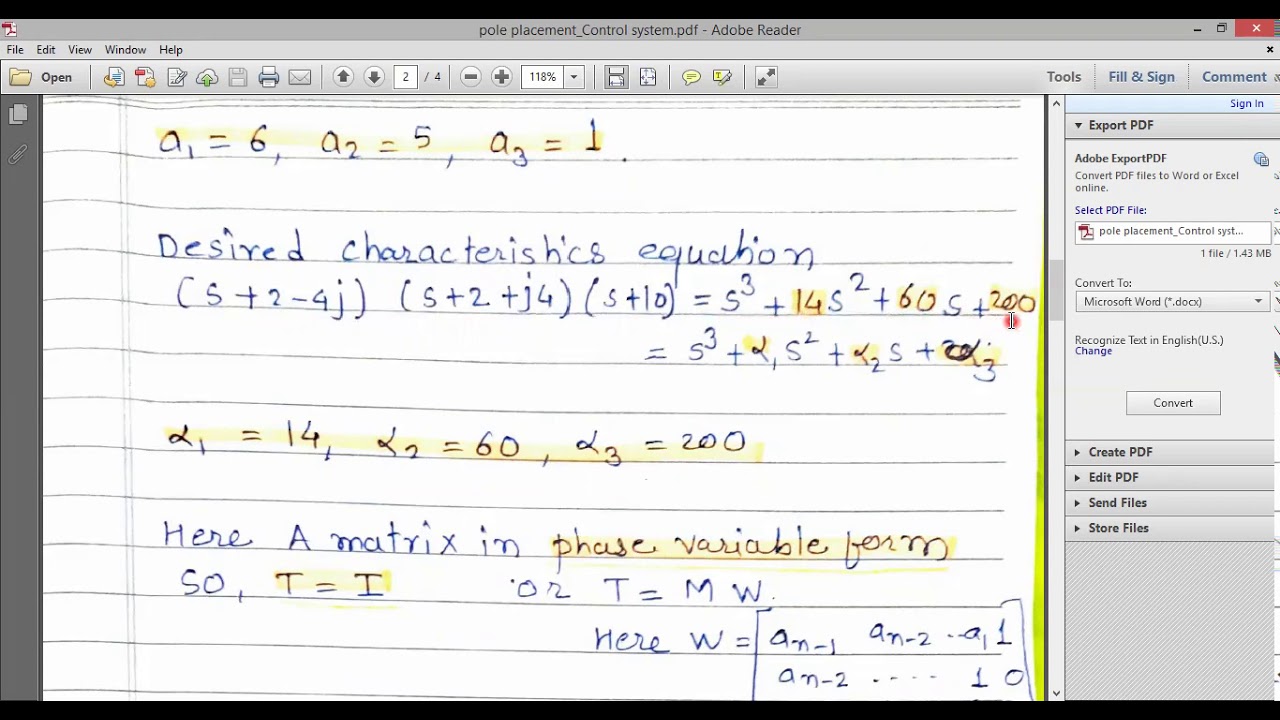 pole placement_Control system.pdf - Adobe Reader
File Edit View Window Help
Open 2 / 4 118% Tools Fill & Sign Comment
Sign In
Export PDF
Adobe ExportPDF
Convert PDF files to Word or Excel
online.
Select PDF File:
pole placement_Control syst...
1 file / 1.43 MB
Convert To:
Microsoft Word (*.docx)
Recognize Text in English(U.S.)
Change
Convert
Create PDF
Edit PDF
Send Files
Store Files
a₁ = 6, a₂ = 5, a₃ = 1.
Desired characteristics equation
(s+2-4j) (s+2+j4) (s+10) = s³ + 14s² + 60s + 200
= s³ + α₁s² + α₂s + α₃
α₁ = 14, α₂ = 60, α₃ = 200
Here A matrix in phase variable form
SO, T = I or T = M W.
Here W = [ aₙ₋₁ aₙ₋₂ .. a₁ 1
aₙ₋₂ .... 1 0